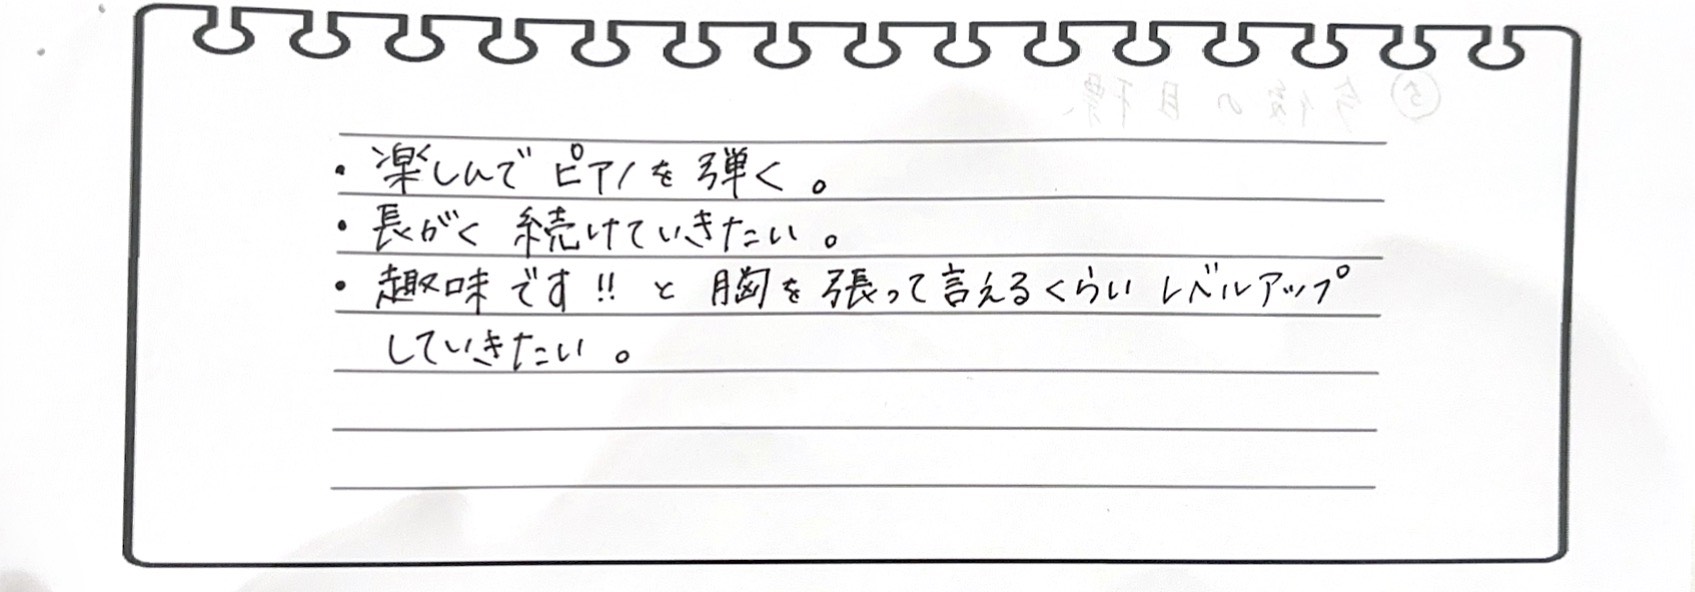 ・楽しんでピアノを弾く。
・長がく続けていきたい。
・趣味です!!と胸を張って言えるくらいレベルアップ
していきたい。